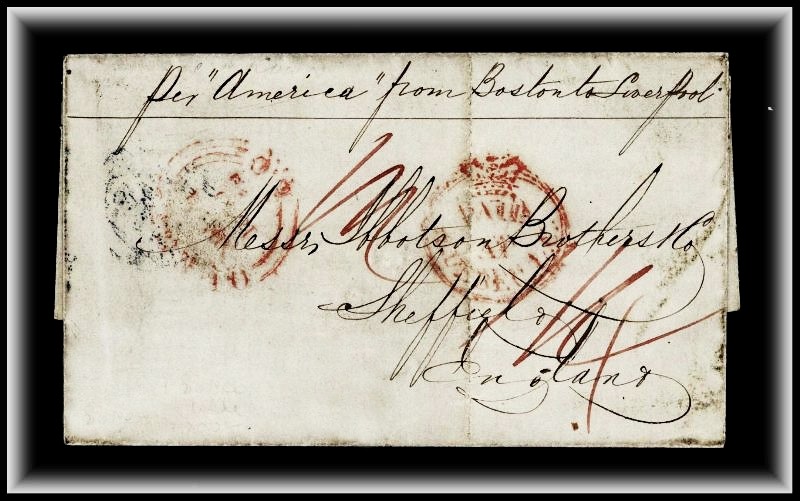 per "America" from Boston to Liverpool
Messrs Ibbotson Brothers & Co
Sheffield
England
PAID